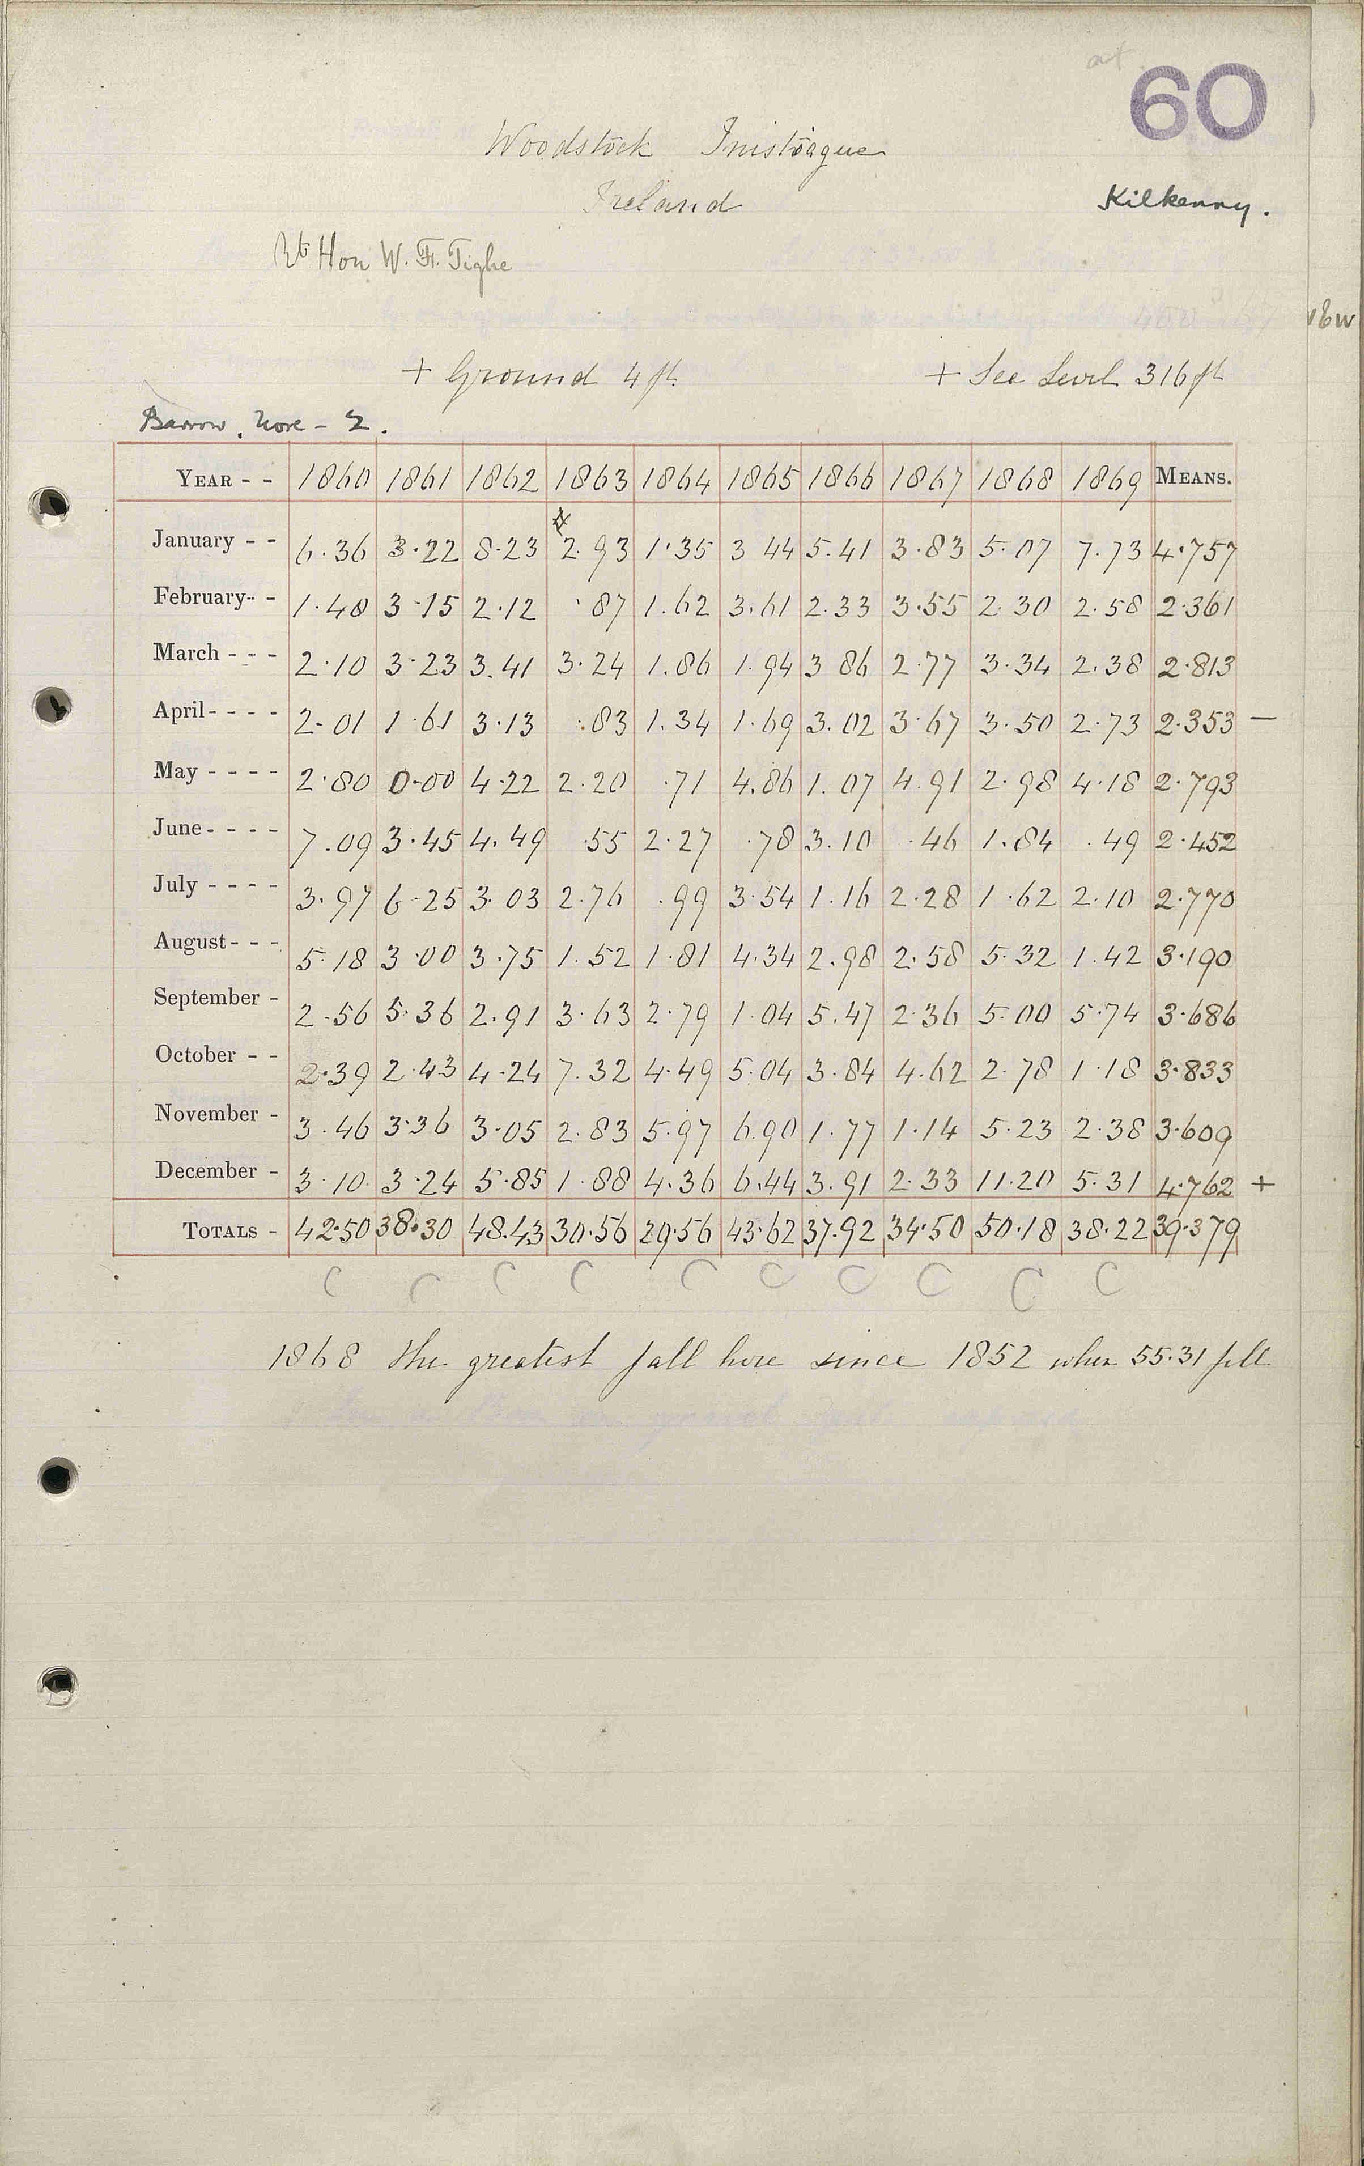 60
Woodstock Inistiogue
Ireland
Kilkenny.
Rt Hon W. F. Tighe
+ Ground 4 ft + See Level 316 ft
Barrow, Nore - 2.
YEAR - - 1860 1861 1862 1863 1864 1865 1866 1867 1868 1869 MEANS.
January - - 6.36 3.22 8.23 2.93 1.35 3 44 5.41 3.83 5.07 7.73 4.757
February - - 1.48 3.15 2.12 .87 1.62 3.61 2.33 3.55 2.30 2.58 2.361
March - - - 2.10 3.23 3.41 3.24 1.86 1.94 3 86 2.77 3.34 2.38 2.813
April - - - - 2.01 1.61 3.13 .83 1.34 1.69 3.02 3.67 3.50 2.73 2.353 —
May - - - - 2.80 0.00 4.22 2.20 .71 4.86 1.07 4.91 2.98 4.18 2.793
June - - - - 7.09 3.45 4.49 .55 2.27 .78 3.10 .46 1.84 .49 2.452
July - - - - 3.97 6.25 3.03 2.76 .99 3.54 1.16 2.28 1.62 2.10 2.770
August - - - 5.18 3.00 3.75 1.52 1.81 4.34 2.98 2.58 5.32 1.42 3.190
September - 2.56 5.36 2.91 3.63 2.79 1.04 5.47 2.36 5.00 5.74 3.686
October - - 2.39 2.43 4.24 7.32 4.49 5.04 3.84 4.62 2.78 1.18 3.833
November - 3.46 3.36 3.05 2.83 5.97 6.90 1.77 1.14 5.23 2.38 3.609
December - 3.10 3.24 5.85 1.88 4.36 6.44 3.91 2.33 11.20 5.31 4.762 +
TOTALS - 42.50 38.30 48.43 30.56 29.56 43.62 37.92 34.50 50.18 38.22 39.379
1868 the greatest fall here since 1852 when 55.31 fell